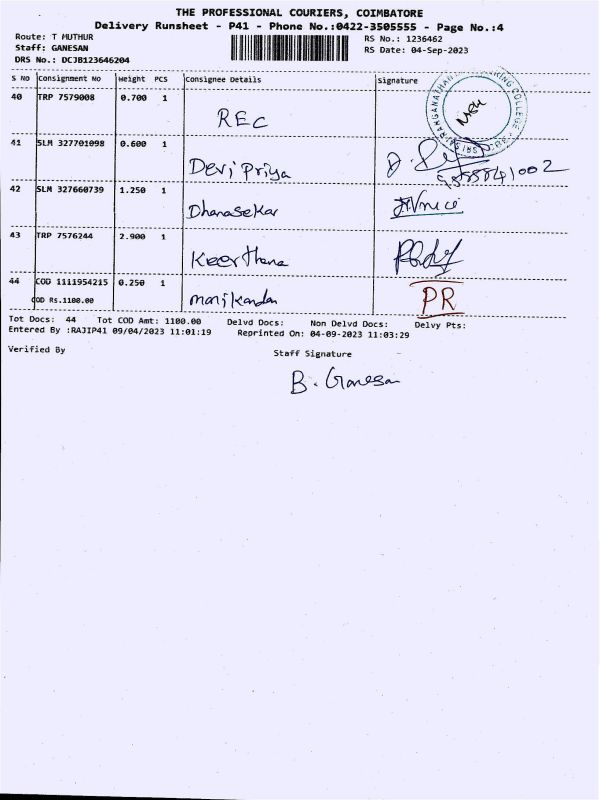 THE PROFESSIONAL COURIERS, COIMBATORE
Delivery Runsheet - P41 - Phone No.:0422-3505555 - Page No.:4
Route: T MUTHUR
RS No.: 1236462
Staff: GANESAN
RS Date: 04-Sep-2023
DRS No.: DCJB123646204
S No Consignment No Weight PCS Consignee Details Signature
40 TRP 7579008 0.700 1 REC
41 SLM 327701098 0.600 1 Devi Priya
42 SLM 327660739 1.250 1 Dhanasekar
43 TRP 7576244 2.900 1 Keerthana
44 COD 1111954215 0.250 1 manikandan PR
COD Rs.1100.00
Tot Docs: 44 Tot COD Amt: 1100.00 Delvd Docs: Non Delvd Docs: Delvy Pts:
Entered By :RAJIP41 09/04/2023 11:01:19 Reprinted On: 04-09-2023 11:03:29
Verified By
Staff Signature
B. Ganesan